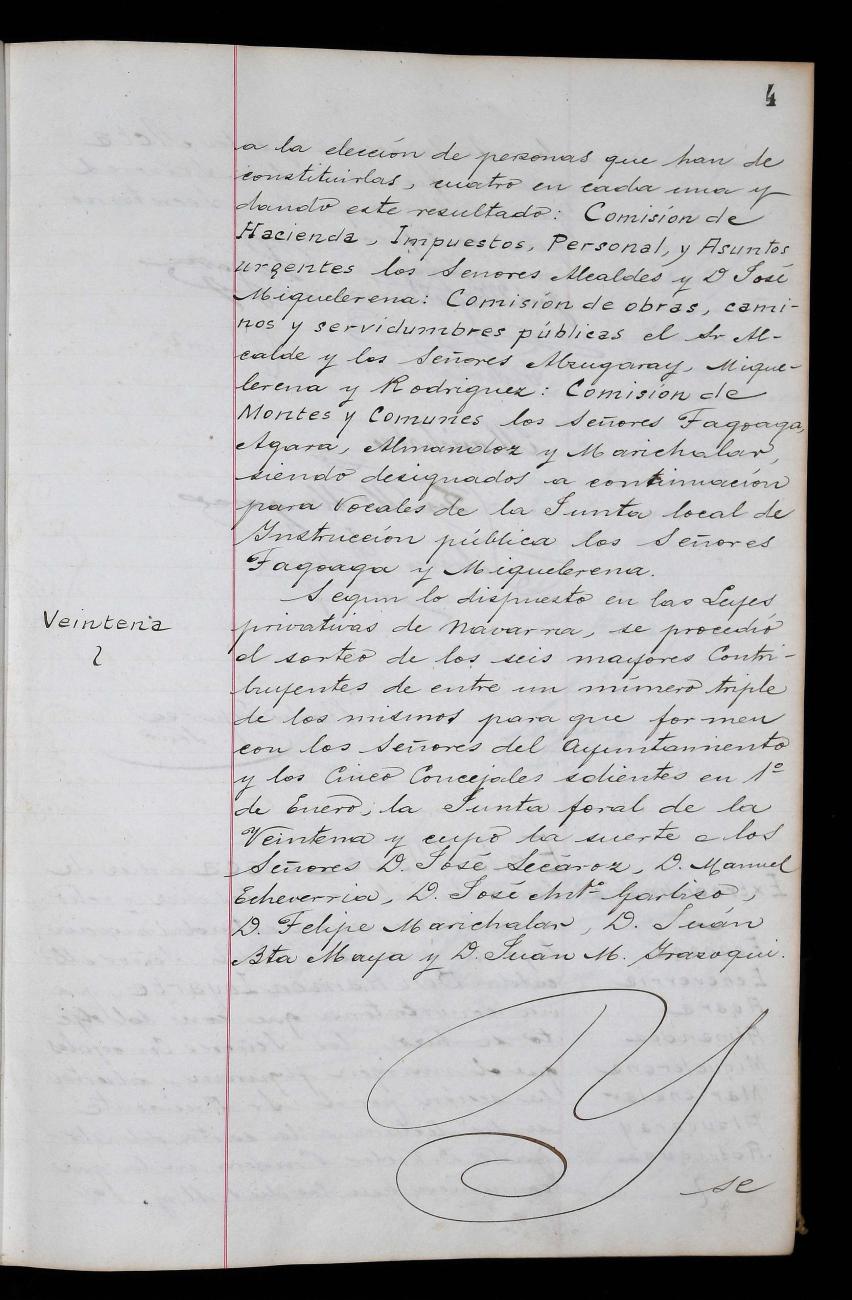 4
a la elección de personas que han de
constituirlas, cuatro en cada una y
dando este resultado: Comisión de
Hacienda, Impuestos, Personal, y Asuntos
urgentes los Señores Alcaldes y D José
Miquelerena: Comisión de obras, cami-
nos y servidumbres públicas el Sr Al-
calde y los Señores Alzugaray, Mique-
lerena y Rodriguez: Comisión de
Montes y Comunes los Señores Fagoaga,
Agara, Almandoz y Marichalar,
siendo designados a continuación
para Vocales de la Junta local de
Instrucción pública los Señores
Fagoaga y Miquelerena.
Segun lo dispuesto en las Leyes
Veintena
privativas de Navarra, se procedió
al sorteo de los seis mayores Contri-
buyentes de entre un número triple
de los mismos para que formen
con los Señores del Ayuntamiento
y los Cinco Concejales salientes en 1º
de Enero, la Junta foral de la
Veintena y cupo la suerte a los
Señores D. José Lecároz, D. Manuel
Echeverria, D. José Antº
D. Felipe Marichalar, D. Juán
Bta Maya y D. Juán M. Irazoqui.
se